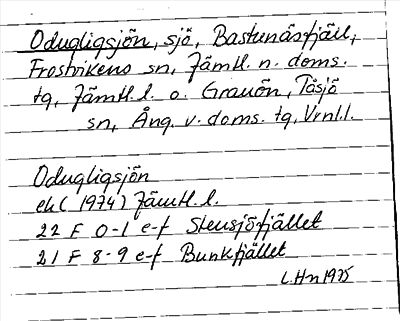 Odugligsjön, sjö, Bastunäsfjäll,
Frostvikens sn, Jämtl. n. doms.
tg, Jämtl. l. o. Grauön, Tåsjö
sn, Ång. v. doms. tg, Vrnl.l.
Odugligsjön
ek (1974) Jämtl. l.
22 F 0-1 e-f Stensjöfjället
21 F 8-9 e-f Bunkfjället
L.Hn 1975